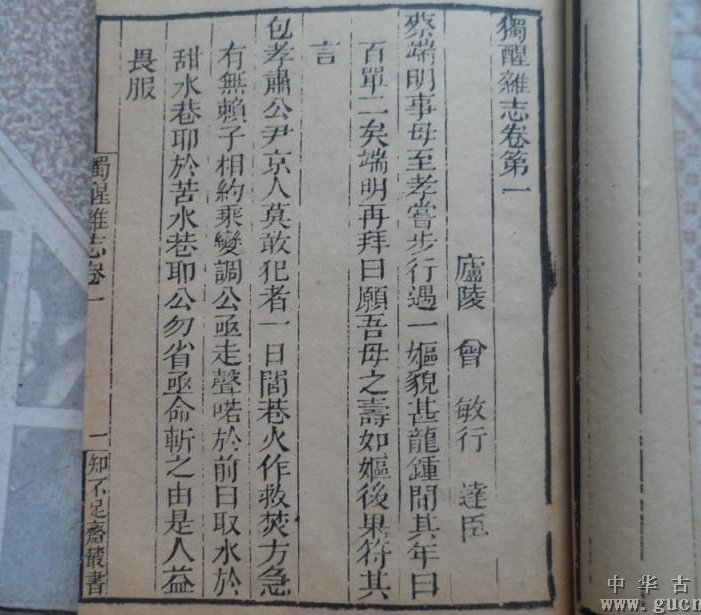 獨醒雜志卷第一
廬陵 曾 敏行 達臣
蔡端明事母至孝嘗步行遇一嫗貌甚龍鍾問其年曰
百單二矣端明再拜曰願吾母之壽如嫗後果符其
言
包孝肅公尹京人莫敢犯者一日閭巷火作救焚方急
有無賴子相約乘變調公亟走聲喏於前曰取水於
甜水巷耶於苦水巷耶公勿省亟命斬之由是人益
畏服
獨醒雜志卷一 一 知不足齋叢書
中华古
www.gucn